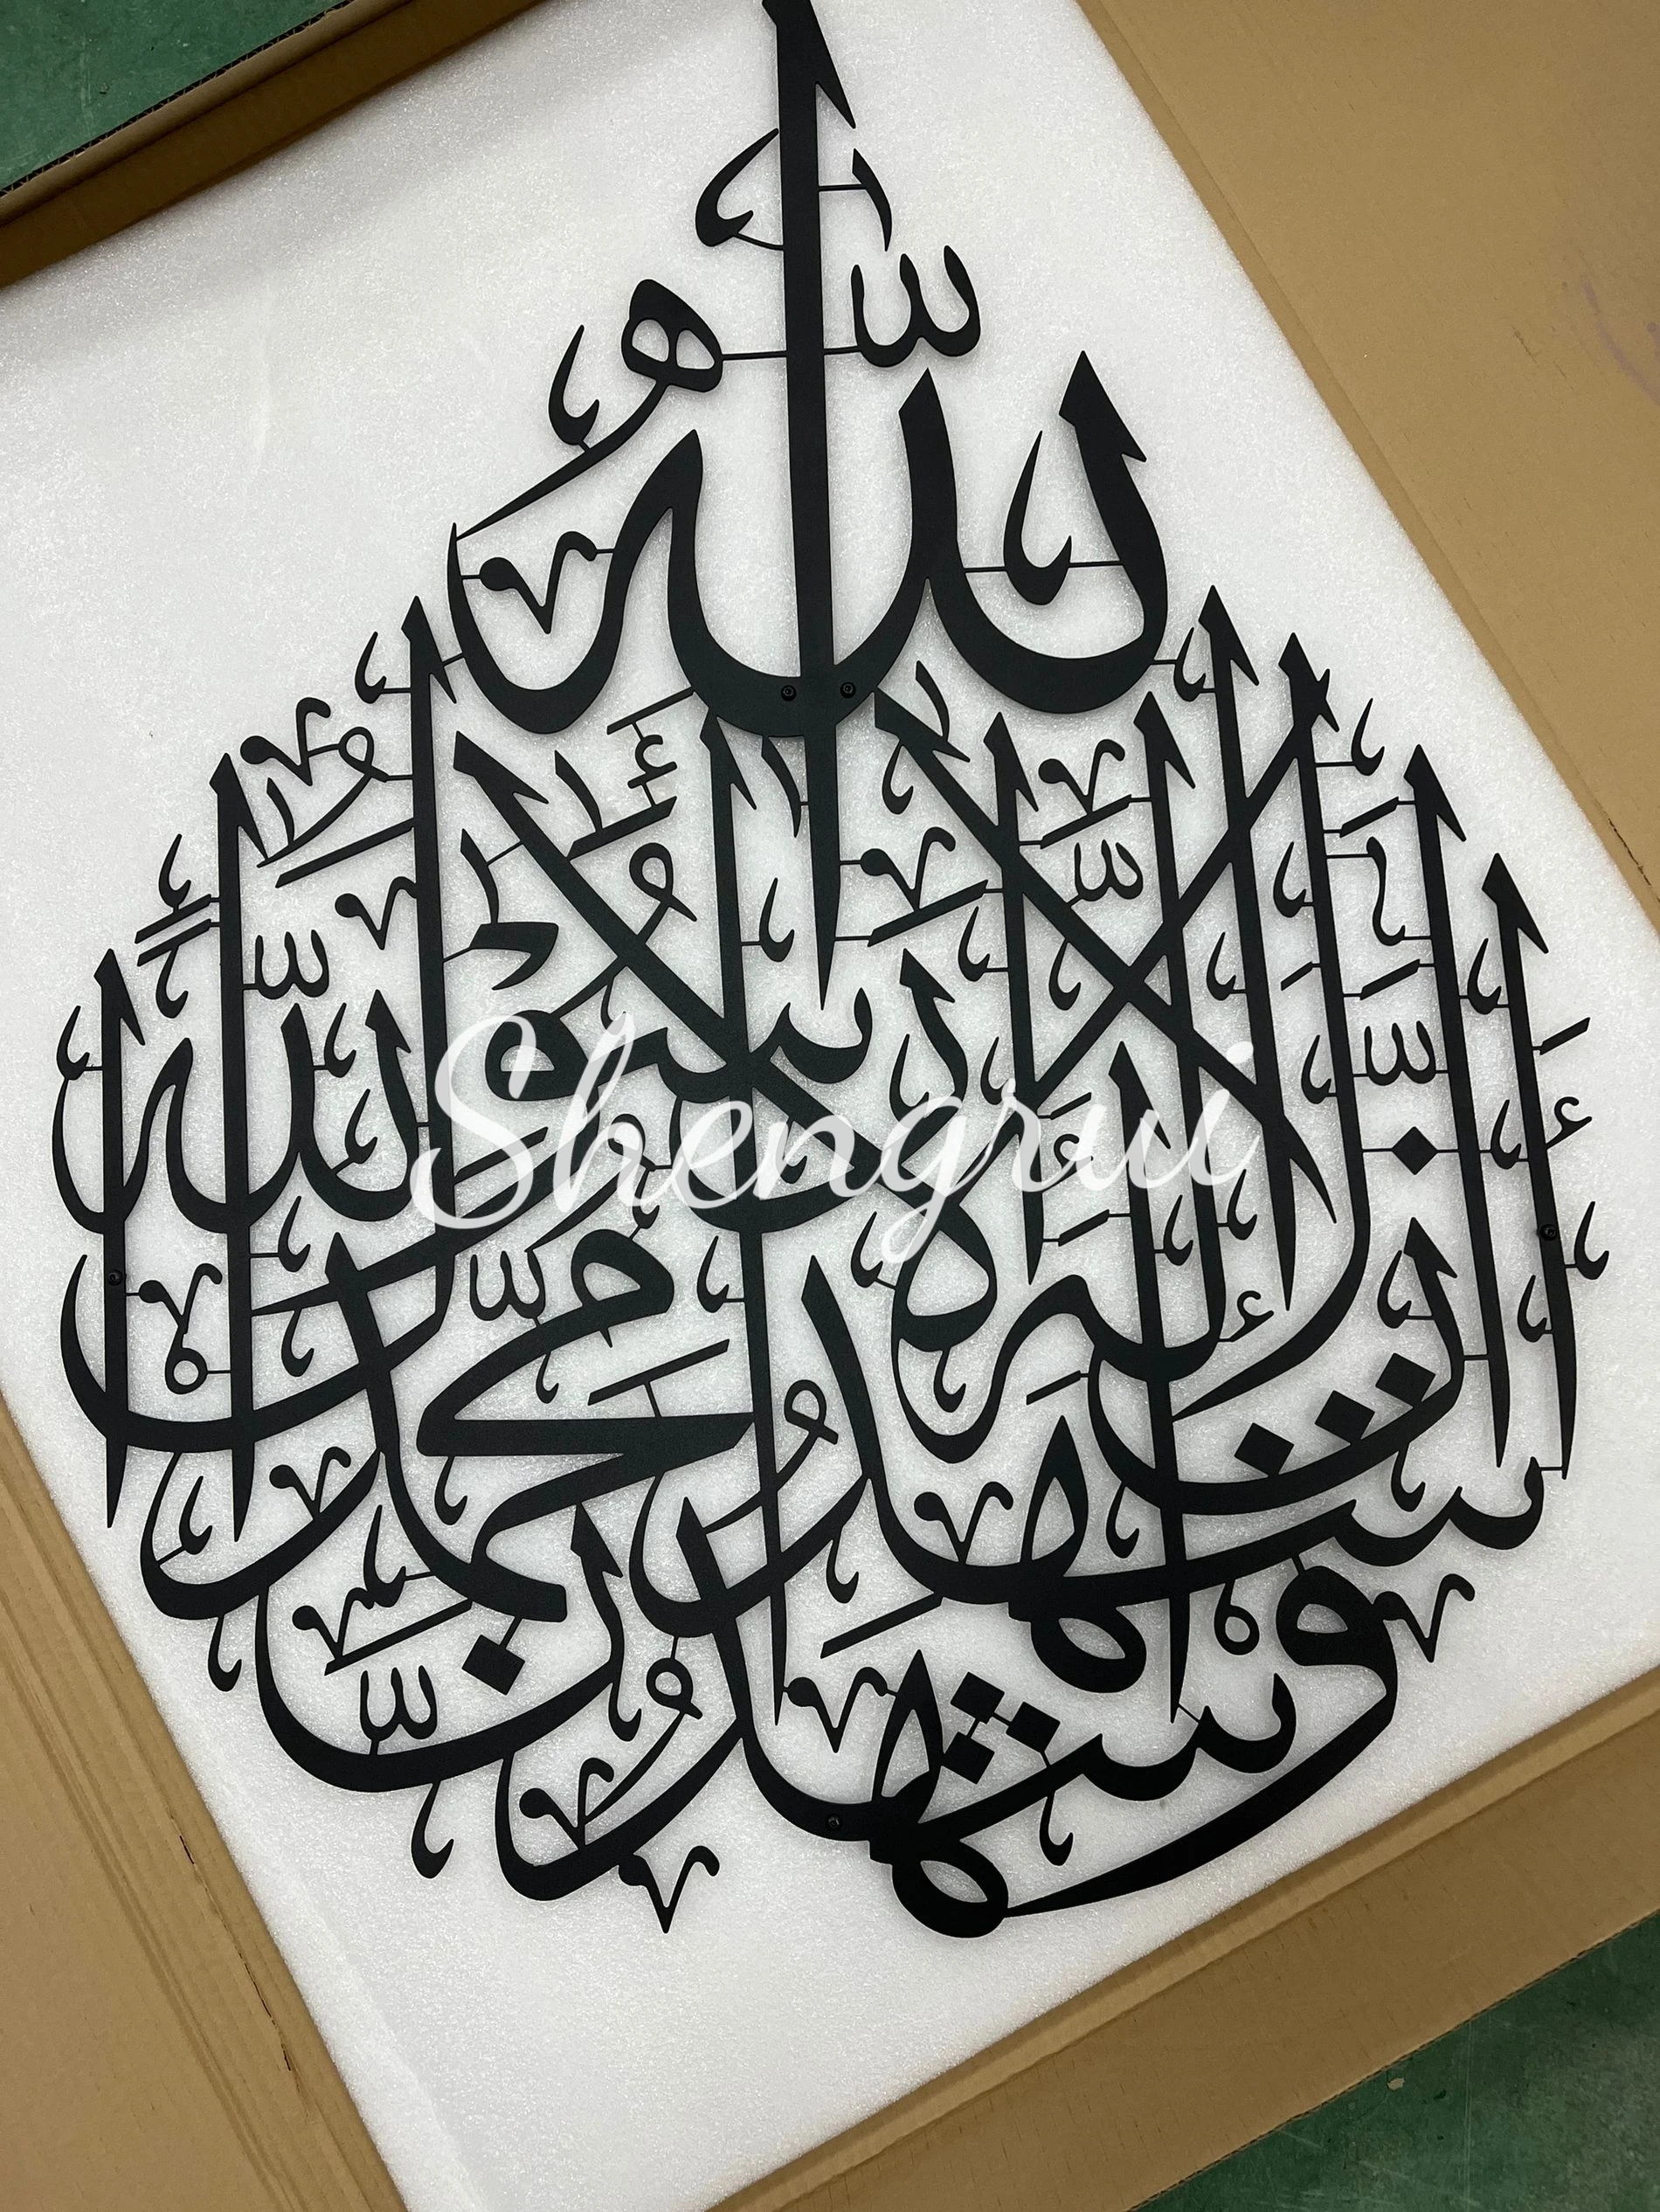 أشهد أن لا إله إلا الله
وأشهد أن محمدا رسول الله
Shengrui